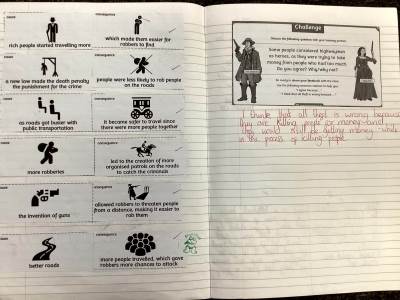 cause
consequence
rich people started travelling more
which made them easier for
robbers to find
cause
consequence
a new law made the death penalty
the punishment for the crime
people were less likely to rob people
on the roads
cause
consequence
as roads got busier with
public transportation
it became safer to travel since
there were more people together
cause
consequence
more robberies
led to the creation of more
organised patrols on the roads
to catch the criminals
cause
consequence
the invention of guns
allowed robbers to threaten people
from a distance, making it easier to
rob them
cause
consequence
better roads
more people travelled, which gave
robbers more chances to attack
Challenge
Discuss the following question with your learning partner.
Some people considered highwaymen
as heroes, as they were trying to take
money from people who had too much.
Do you agree? Why/why not?
I agree because...
I think that all that is wrong because
they are killing people for money and
they would still be getting money
in the paces of killing people.